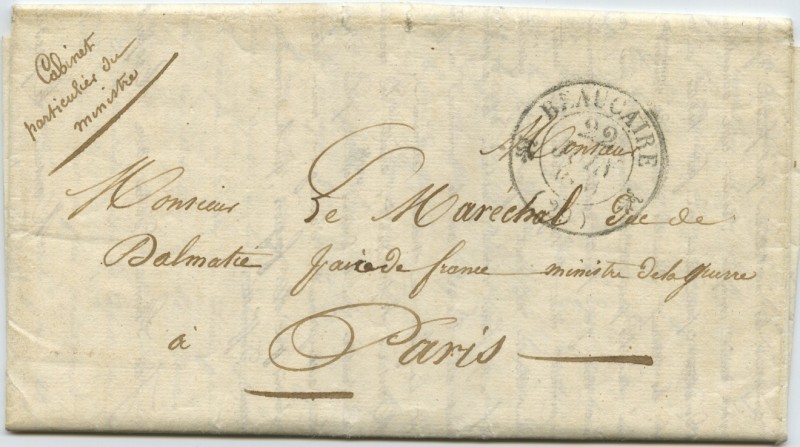 Cabinet
particulier du
ministre
BEAUCAIRE
22
(29)
Monsieur
Monsieur Le Maréchal Duc de
Dalmatie paire de france ministre de la guerre
à Paris